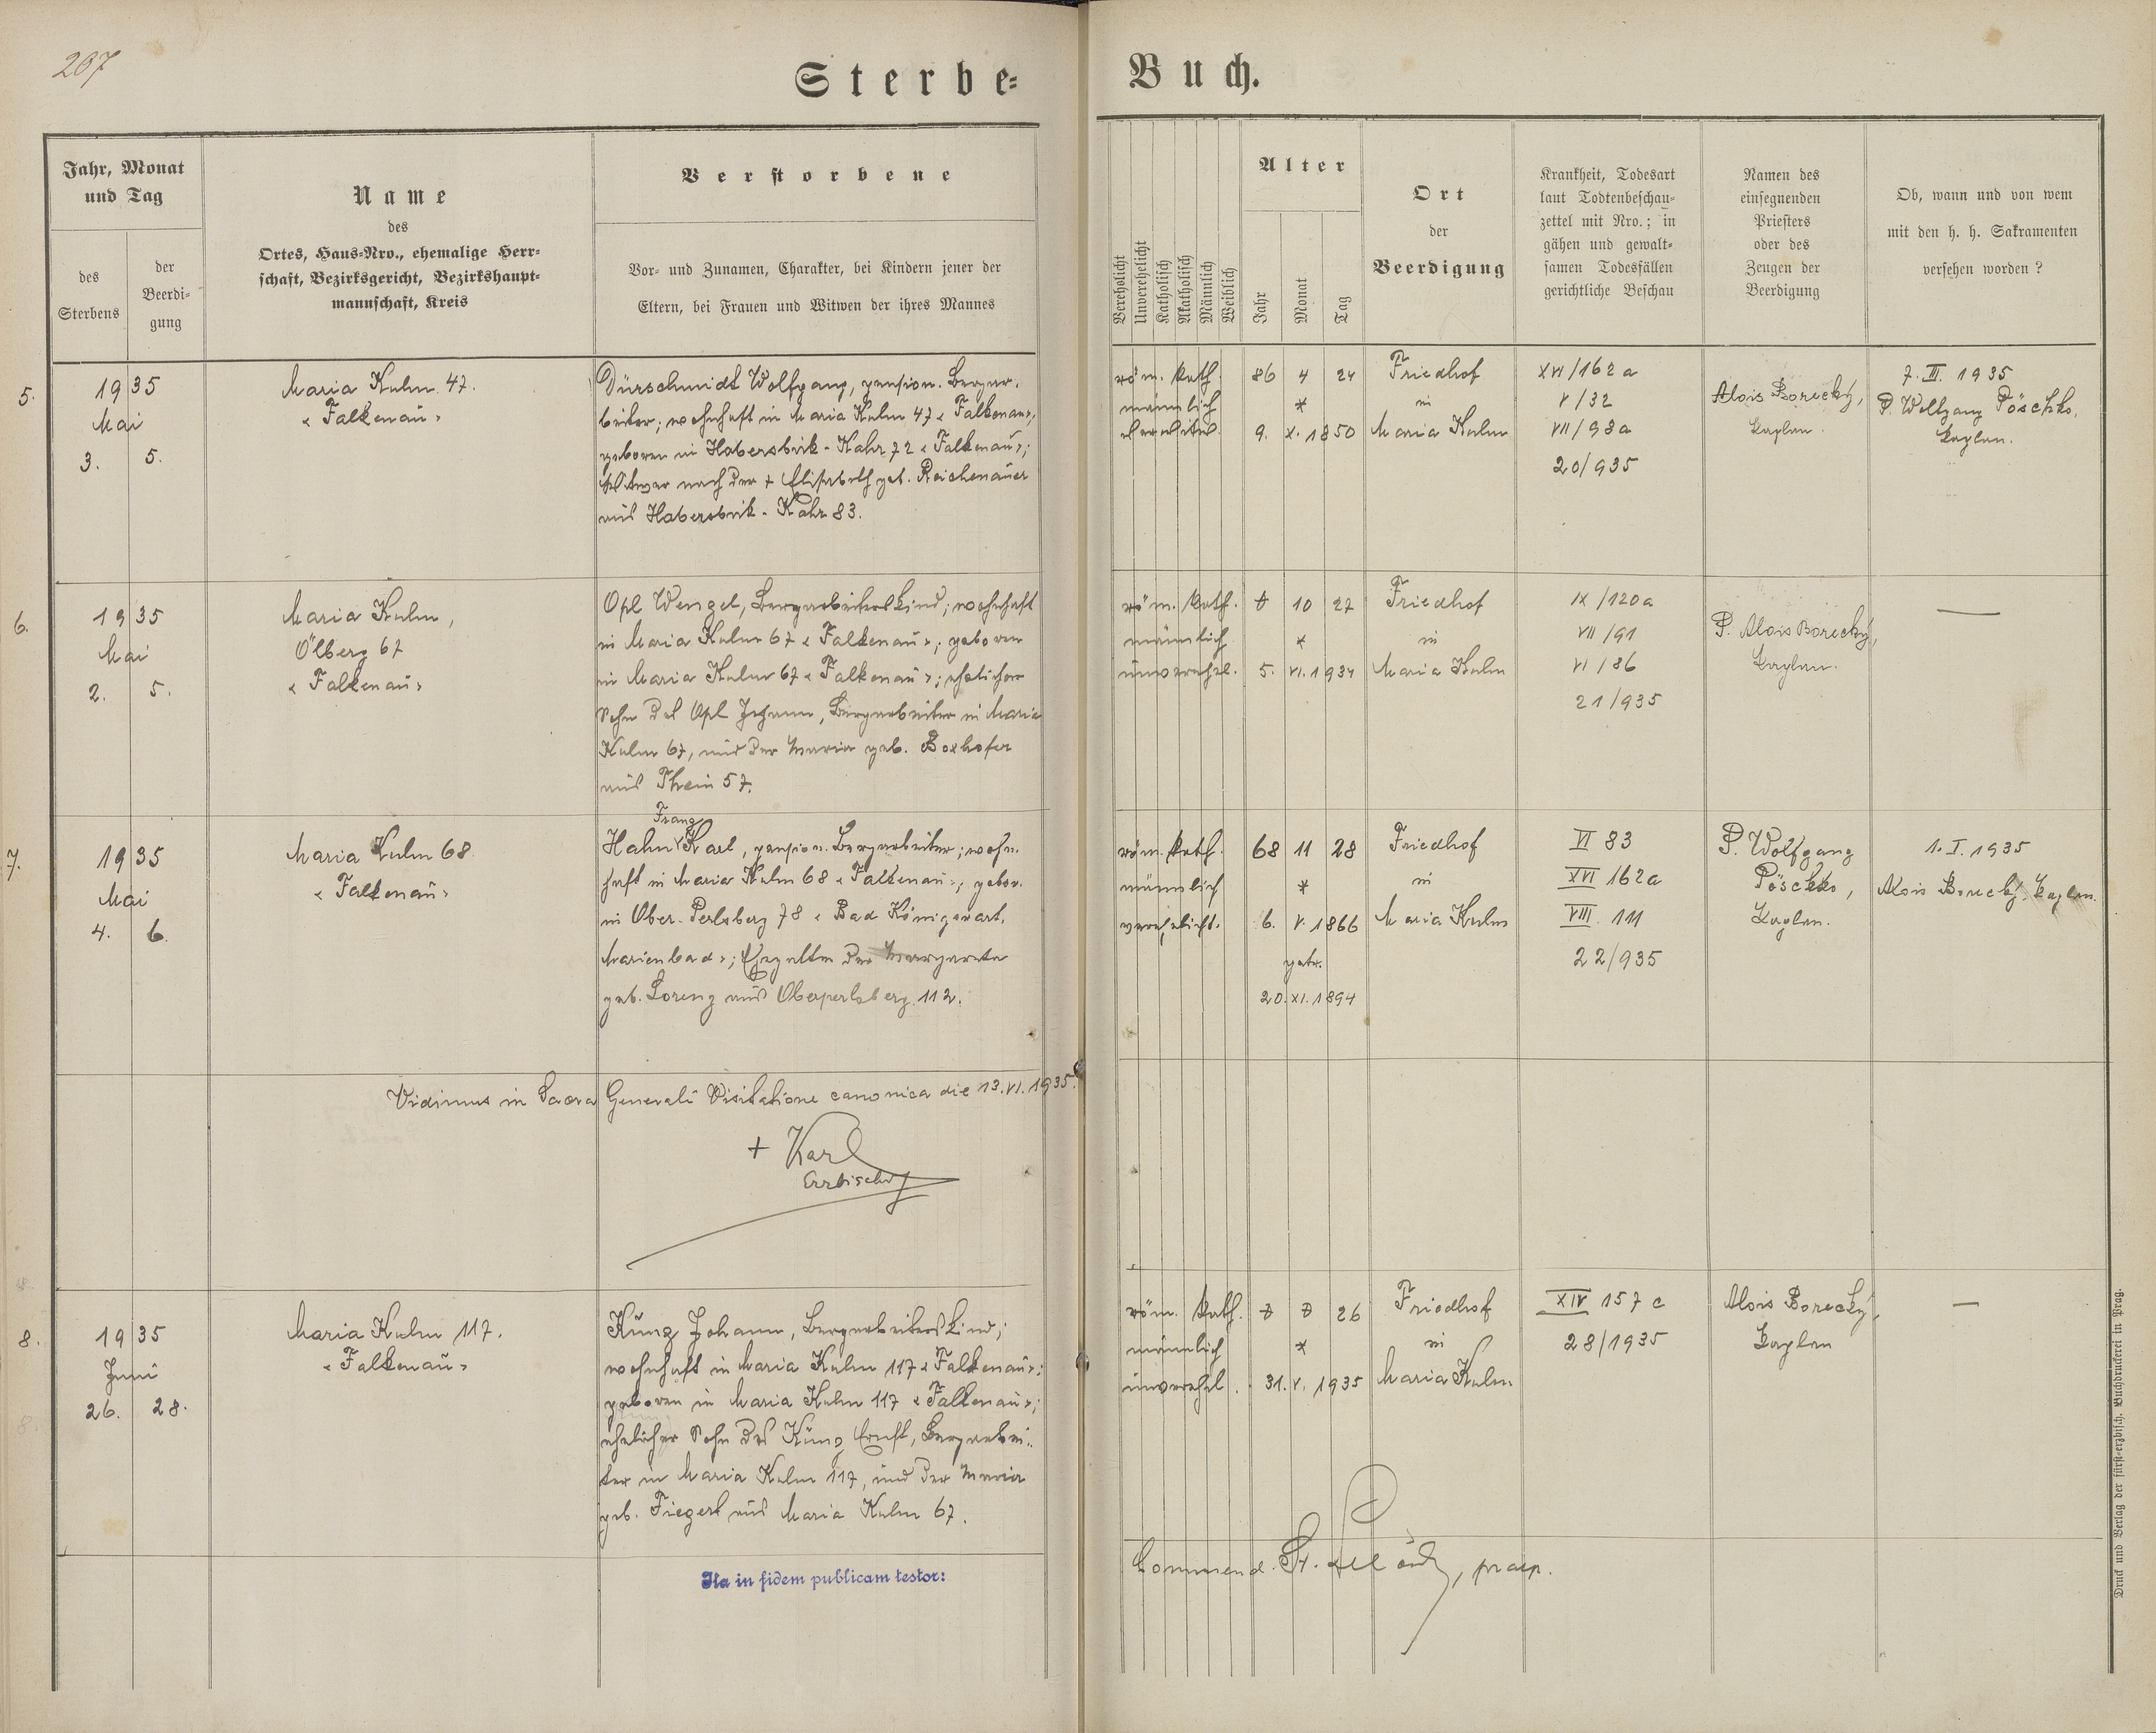 207
Sterbe-
Buch.
Jahr, Monat
und Tag
des
Sterbens
der
Beerdi-
gung
Name
des
Ortes, Haus-Nro., ehemalige Herr-
schaft, Bezirksgericht, Bezirkshaupt-
mannschaft, Kreis
Verstorbene
Vor- und Zunamen, Charakter, bei Kindern jener der
Eltern, bei Frauen und Witwen der ihres Mannes
Verehelicht
Unverehelicht
Katholisch
Akatholisch
Männlich
Weiblich
Alter
Jahr
Monat
Tag
Ort
der
Beerdigung
Krankheit, Todesart
laut Todtenbeschau-
zettel mit Nro.; in
gähen und gewalt-
samen Todesfällen
gerichtliche Beschau
Namen des
einsegnenden
Priesters
oder des
Zeugen der
Beerdigung
Ob, wann und von wem
mit den h. h. Sakramenten
versehen worden?
5.
1935
Mai
3. 5.
Maria Kulm 47.
« Falkenau »
Dürschmidt Wolfgang, pension. Bergar-
beiter; wohnhaft in Maria Kulm 47 « Falkenau »,
geboren in Habersbirk-Kahr 72 « Falkenau »;
Witwer nach der + Elisabeth geb. Reichenauer
aus Habersbirk-Kahr 83.
röm. kath.
männlich
verwitwet.
86 4 24
*
9. X. 1850
Friedhof
in
Maria Kulm
XVI/162a
V/32
VII/98a
20/935
Alois Borecký,
Kaplan.
7. III. 1935
P. Wolfgang Pöschko,
Kaplan.
6.
1935
Mai
2. 5.
Maria Kulm,
Ölberg 67
« Falkenau »
Opl Wenzel, Bergarbeiterskind; wohnhaft
in Maria Kulm 67 « Falkenau »; geboren
in Maria Kulm 67 « Falkenau »; ehelicher
Sohn des Opl Johann, Bergarbeiter in Maria
Kulm 67, und der Maria geb. Boxhofer
aus Thein 57.
röm. kath.
männlich
unverehel.
0 10 27
*
5. VI. 1934
Friedhof
in
Maria Kulm
IX/120a
VII/91
VI/86
21/935
P. Alois Borecký,
Kaplan.
—
7.
1935
Mai
4. 6.
Maria Kulm 68
« Falkenau »
Franz
Hahn Karl, pension. Bergarbeiter; wohn-
haft in Maria Kulm 68 « Falkenau »; gebor.
in Ober-Perlsberg 78 « Bad Königswart,
Marienbad »; Ehegatte der Margareta
geb. Lorenz aus Oberperlsberg 112.
röm. kath.
männlich
verehelicht.
68 11 28
*
6. V. 1866
getr.
20. XI. 1894
Friedhof
in
Maria Kulm
VI 83
XVI 162a
VIII 111
22/935
P. Wolfgang
Pöschko,
Kaplan.
1. I. 1935
Alois Borecký, Kaplan.
Vidimus in Sacra Generali Visitatione canonica die 13. VI. 1935.
+ Karl
Erzbischof
8.
1935
Juni
26. 28.
Maria Kulm 117.
« Falkenau »
Künz Johann, Bergarbeiterskind;
wohnhaft in Maria Kulm 117 « Falkenau »;
geboren in Maria Kulm 117 « Falkenau »;
ehelicher Sohn des Künz Ernst, Bergarbei-
ter in Maria Kulm 117, und der Maria
geb. Fiegerl aus Maria Kulm 67.
röm. kath.
männlich
unverehel.
0 0 26
*
31. V. 1935
Friedhof
in
Maria Kulm
XIV 157c
28/1935
Alois Borecký,
Kaplan
—
Ita in fidem publicam testor:
Commend. praep.
Druck und Verlag der fürst-erzbisch. Buchdruckerei in Prag.